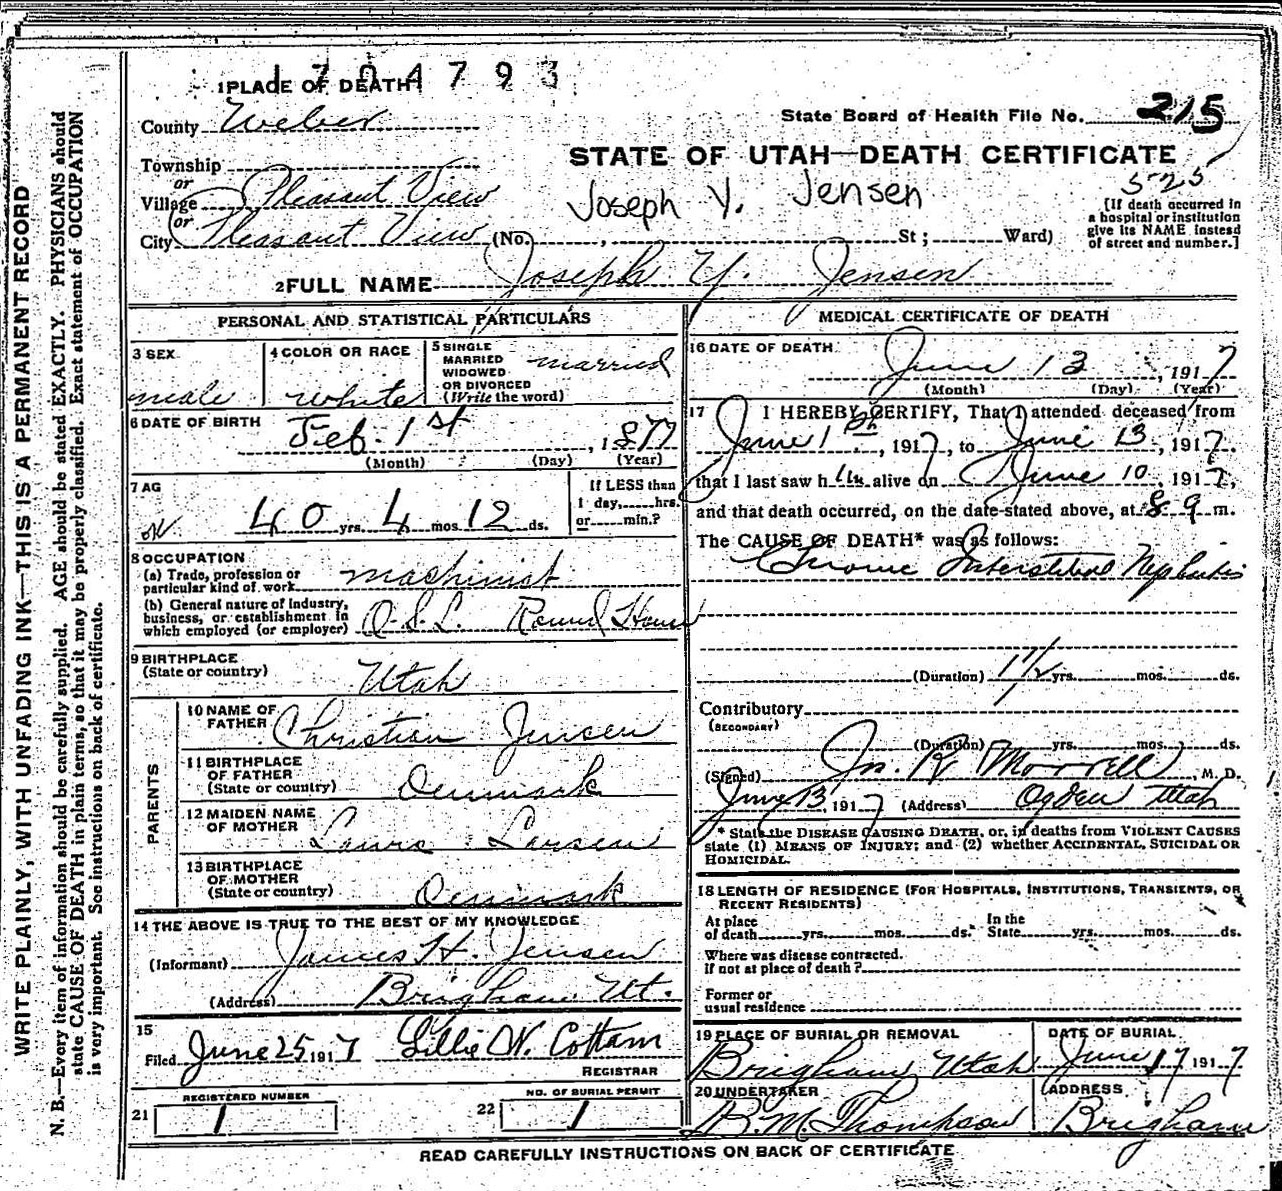 1704793
1 PLACE OF DEATH
County Weber
State Board of Health File No. 215
Township
STATE OF UTAH—DEATH CERTIFICATE
or
Village Pleasant View
Joseph Y. Jensen
525
or
City Pleasant View (No. , St; Ward)
[If death occurred in
a hospital or institution
give its NAME instead
of street and number.]
2 FULL NAME Joseph Y. Jensen
PERSONAL AND STATISTICAL PARTICULARS
3 SEX
male
4 COLOR OR RACE
white
5 SINGLE
MARRIED
WIDOWED
OR DIVORCED
(Write the word)
married
6 DATE OF BIRTH
Feb. 1st, 1877
(Month) (Day) (Year)
7 AG
40 yrs. 4 mos 12 ds.
If LESS than
1 day, hrs.
or min.?
8 OCCUPATION
(a) Trade, profession or
particular kind of work machinist
(b) General nature of industry,
business, or establishment in
which employed (or employer) O.S.L. Round House
9 BIRTHPLACE
(State or country) Utah
PARENTS
10 NAME OF
FATHER Christian Jensen
11 BIRTHPLACE
OF FATHER
(State or country) Denmark
12 MAIDEN NAME
OF MOTHER Laura Larsen
13 BIRTHPLACE
OF MOTHER
(State or country) Denmark
14 THE ABOVE IS TRUE TO THE BEST OF MY KNOWLEDGE
(Informant) James H. Jensen
(Address) Brigham Ut.
15
Filed June 25 1917 Lillie W. Cottam
REGISTRAR
21 REGISTERED NUMBER
1
22 NO. OF BURIAL PERMIT
1
MEDICAL CERTIFICATE OF DEATH
16 DATE OF DEATH
June 13, 1917
(Month) (Day) (Year)
17 I HEREBY CERTIFY, That I attended deceased from
June 1, 1917, to June 13, 1917,
that I last saw h im alive on June 10, 1917,
and that death occurred, on the date stated above, at 8 a m.
The CAUSE OF DEATH* was as follows:
Chronic Interstitial Nephritis
(Duration) 1 1/2 yrs. mos. ds.
Contributory
(SECONDARY)
(Duration) yrs. mos. ds.
(Signed) Jn. R. Morrell, M. D.
13, 1917 (Address) Ogden Utah
* State the DISEASE CAUSING DEATH, or, in deaths from VIOLENT CAUSES
state (1) MEANS OF INJURY; and (2) whether ACCIDENTAL, SUICIDAL OR
HOMICIDAL.
18 LENGTH OF RESIDENCE (FOR HOSPITALS, INSTITUTIONS, TRANSIENTS, OR
RECENT RESIDENTS)
At place
of death yrs. mos. ds.
In the
State yrs. mos. ds.
Where was disease contracted.
If not at place of death?
Former or
usual residence
19 PLACE OF BURIAL OR REMOVAL
Brigham Utah
DATE OF BURIAL
June 17 1917
20 UNDERTAKER
B. M. Thompson
ADDRESS
Brigham
READ CAREFULLY INSTRUCTIONS ON BACK OF CERTIFICATE
WRITE PLAINLY, WITH UNFADING INK—THIS IS A PERMANENT RECORD
N. B.—Every item of information should be carefully supplied. AGE should be stated EXACTLY. PHYSICIANS should
state CAUSE OF DEATH in plain terms, so that it may be properly classified. Exact statement of OCCUPATION
is very important. See instructions on back of certificate.